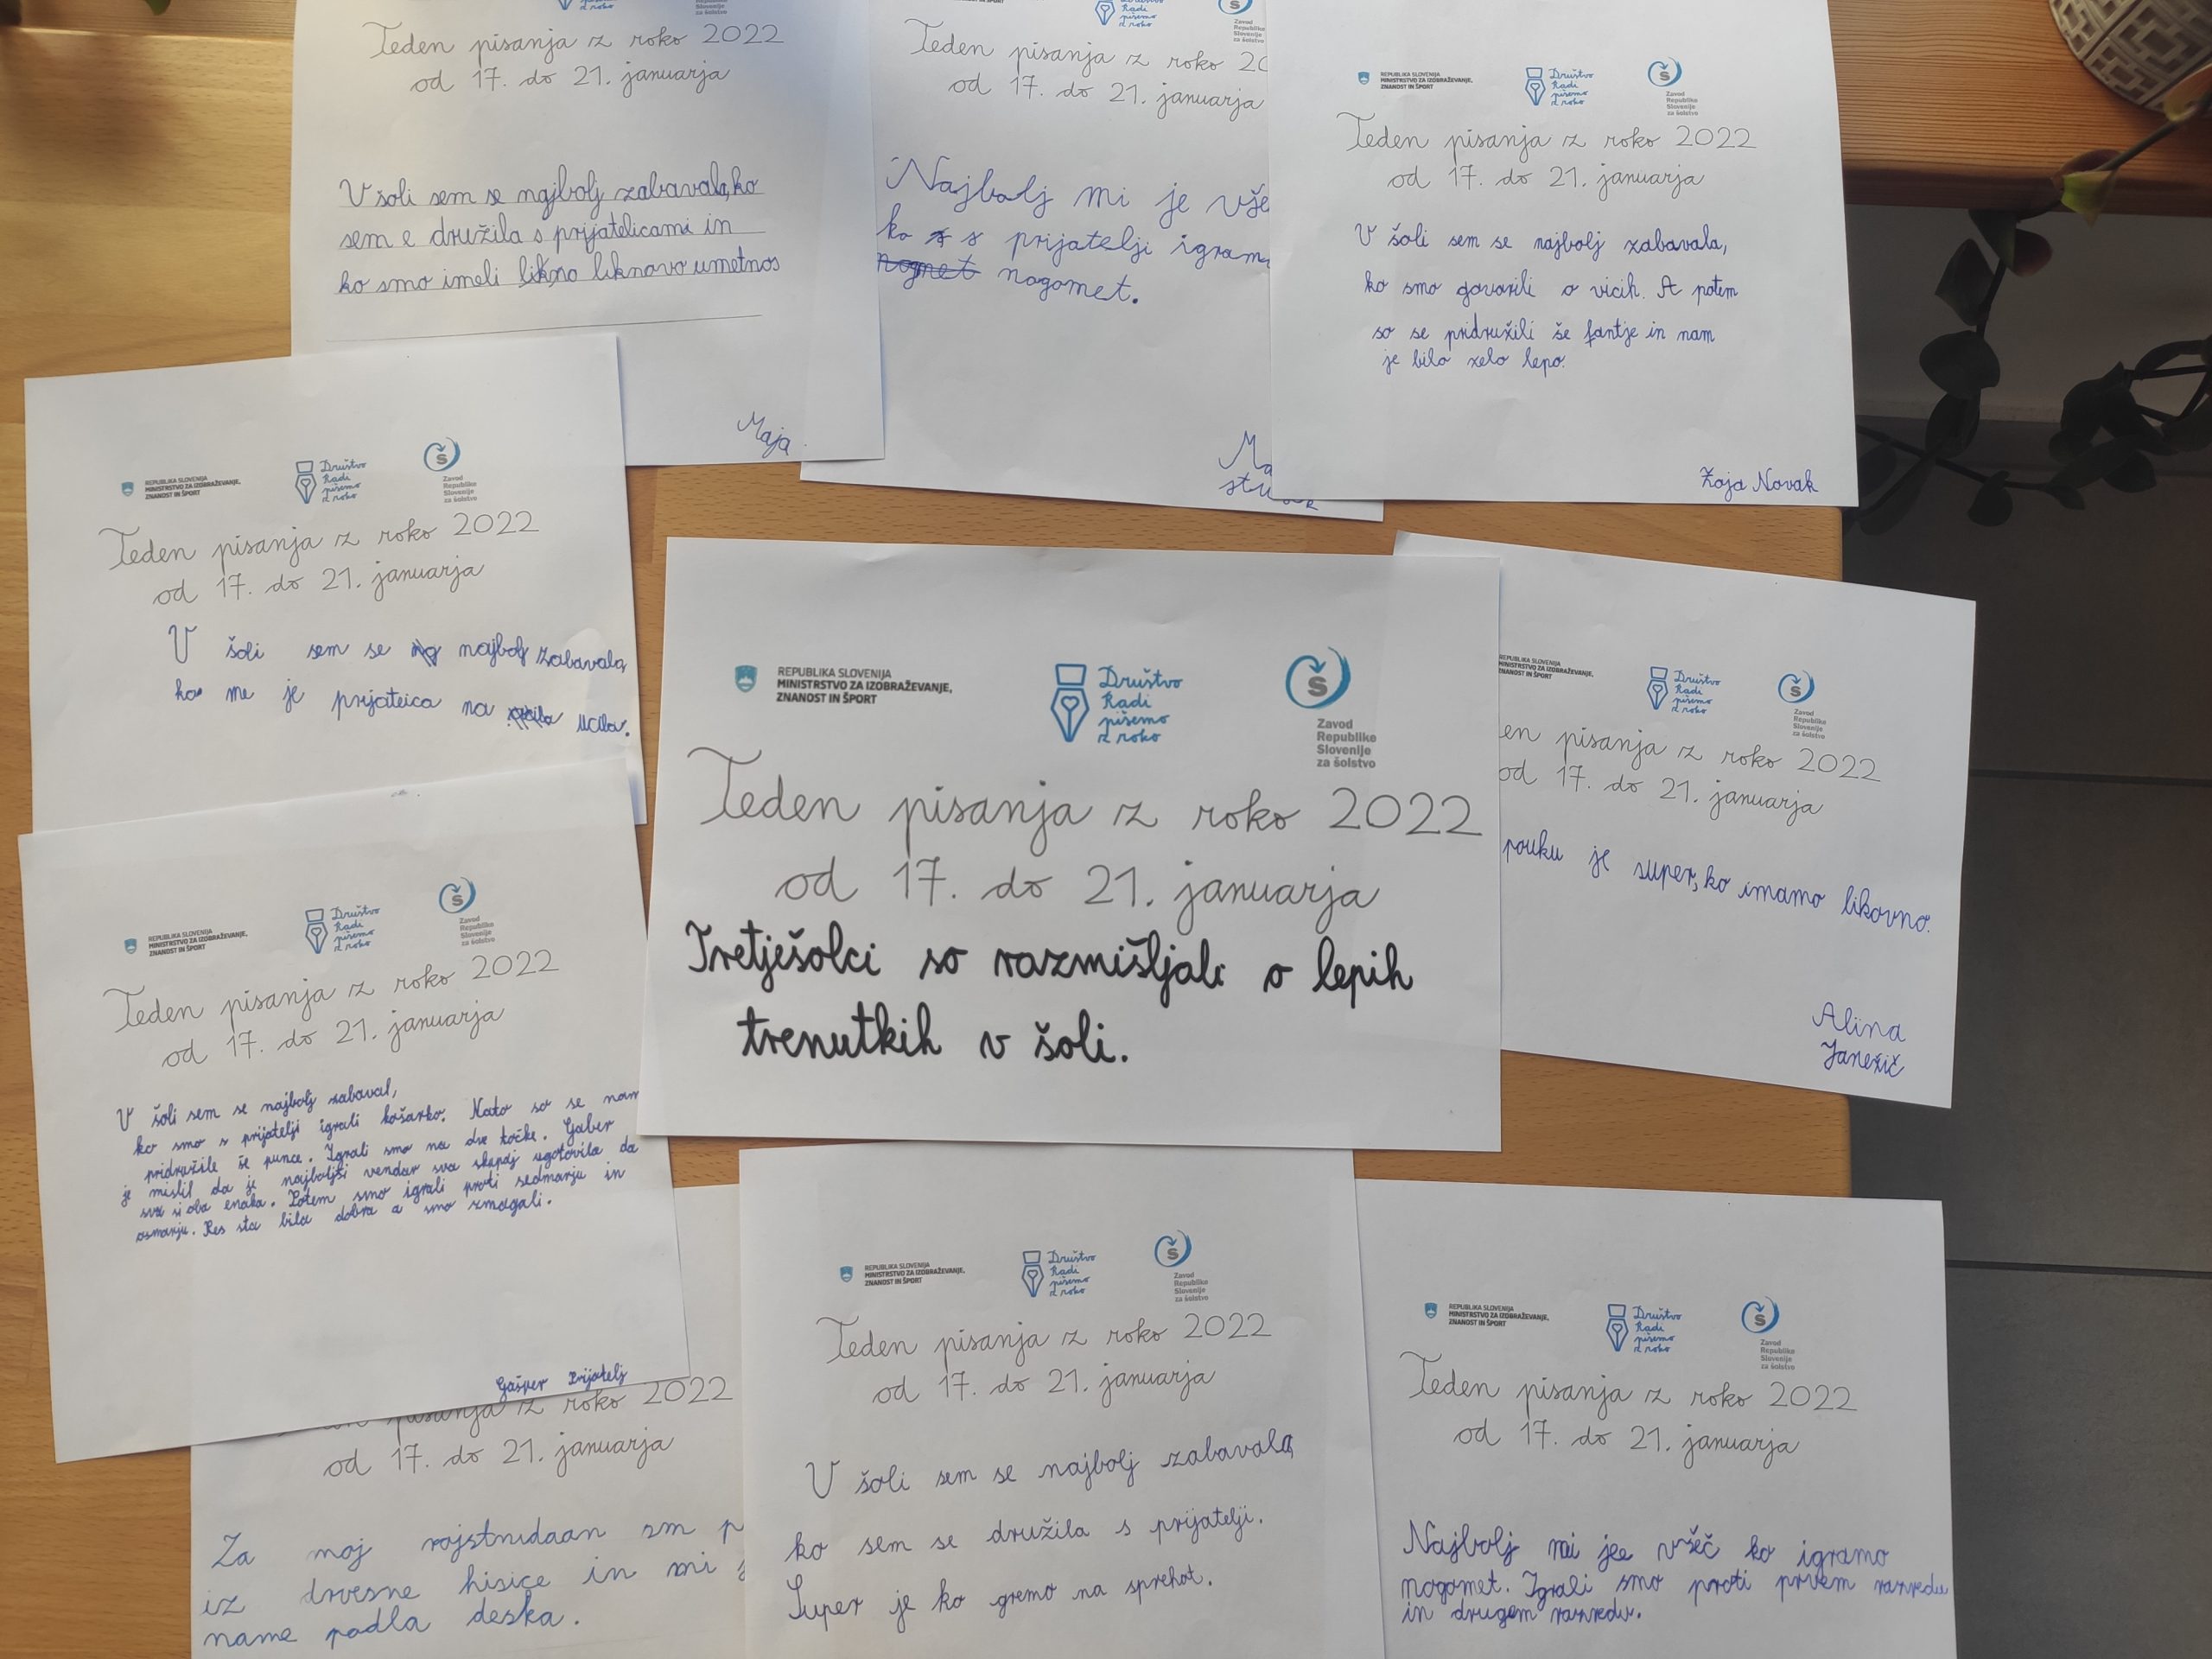 Teden pisanja z roko 2022
od 17. do 21. januarja
V šoli sem se najbolj zabavala, ko
sem e družila s prijatelicami in
ko smo imeli likno liknovo umetnos
Maja
Teden pisanja z roko 20
od 17. do 21. januarja
Najbolj mi je vše
ko s s prijatelji igram
nogmet nogomet.
Ma
REPUBLIKA SLOVENIJA
MINISTRSTVO ZA IZOBRAŽEVANJE,
ZNANOST IN ŠPORT
Društvo
Radi
pišemo
z roko
Š
Zavod
Republike
Slovenije
za šolstvo
Teden pisanja z roko 2022
od 17. do 21. januarja
V šoli sem se najbolj zabavala,
ko smo govorili o vicih. A potem
so se pridružili še fantje in nam
je bilo zelo lepo.
Zoja Novak
REPUBLIKA SLOVENIJA
MINISTRSTVO ZA IZOBRAŽEVANJE,
ZNANOST IN ŠPORT
Društvo
Radi
pišemo
z roko
Š
Zavod
Republike
Slovenije
za šolstvo
Teden pisanja z roko 2022
od 17. do 21. januarja
V šoli sem se najbolj zabavala,
ko me je prijateica na učila.
REPUBLIKA SLOVENIJA
MINISTRSTVO ZA IZOBRAŽEVANJE,
ZNANOST IN ŠPORT
Društvo
Radi
pišemo
z roko
Š
Zavod
Republike
Slovenije
za šolstvo
Teden pisanja z roko 2022
od 17. do 21. januarja
Tretješolci so razmišljali o lepih
trenutkih v šoli.
REPUBLIKA SLOVENIJA
MINISTRSTVO ZA IZOBRAŽEVANJE,
ZNANOST IN ŠPORT
Društvo
Radi
pišemo
z roko
Š
Zavod
Republike
Slovenije
za šolstvo
en pisanja z roko 2022
od 17. do 21. januarja
pouku je super, ko imamo likovno.
Alina
Janežič
REPUBLIKA SLOVENIJA
MINISTRSTVO ZA IZOBRAŽEVANJE,
ZNANOST IN ŠPORT
Društvo
Radi
pišemo
z roko
Š
Zavod
Republike
Slovenije
za šolstvo
Teden pisanja z roko 2022
od 17. do 21. januarja
V šoli sem se najbolj zabaval,
ko smo s prijatelji igrali košarko. Nato so se nam
pridružile še punce. Igrali smo na dve točke. Gaber
je mislil da je najboljši vendar sva skupaj ugotovila da
sva si oba enaka. Potem smo igrali proti sedmarju in
osmarju. Res sta bila dobra a smo zmagali.
Gašper Prijatelj
pisanja z roko 2022
od 17. do 21. januarja
Za moj rojstnidaan sm p
iz drvesne hisice in mi
name padla deska.
REPUBLIKA SLOVENIJA
MINISTRSTVO ZA IZOBRAŽEVANJE,
ZNANOST IN ŠPORT
Društvo
Radi
pišemo
z roko
Š
Zavod
Republike
Slovenije
za šolstvo
Teden pisanja z roko 2022
od 17. do 21. januarja
V šoli sem se najbolj zabavala,
ko sem se družila s prijatelji.
Super je ko gremo na sprehot.
REPUBLIKA SLOVENIJA
MINISTRSTVO ZA IZOBRAŽEVANJE,
ZNANOST IN ŠPORT
Društvo
Radi
pišemo
z roko
Š
Zavod
Republike
Slovenije
za šolstvo
Teden pisanja z roko 2022
od 17. do 21. januarja
Najbolj mi jee všeč ko igramo
nogomet. Igrali smo proti prvem razredu
in drugem razredu.